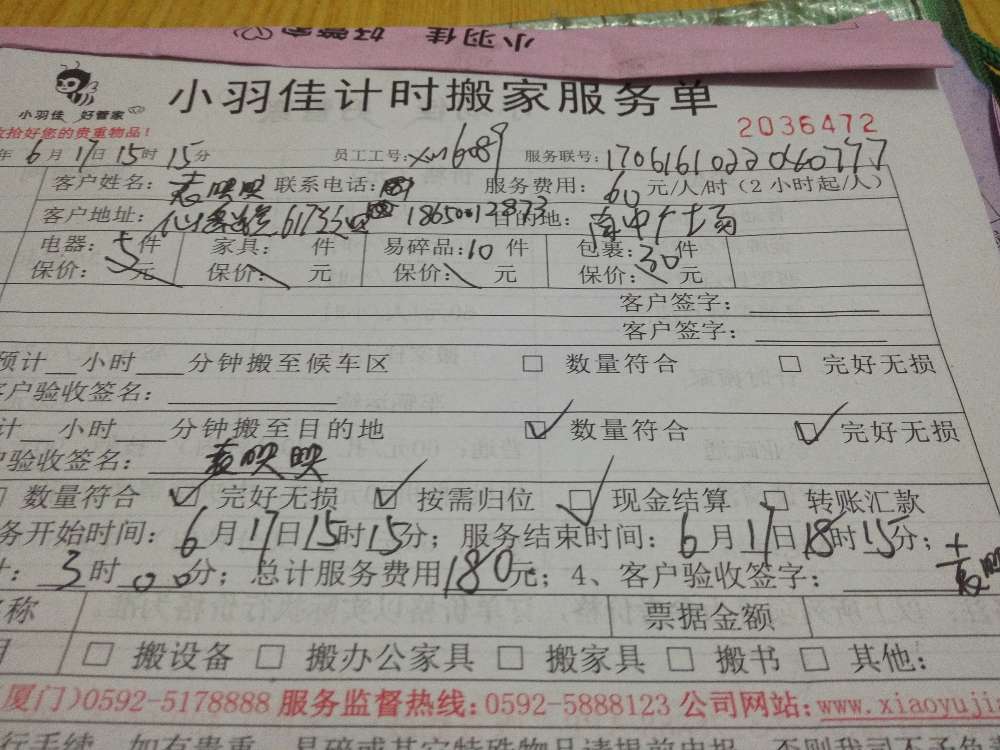 小羽佳 好管家
小羽佳 好管家
小羽佳计时搬家服务单
收拾好您的贵重物品!
2036472
年6月17日15时15分 员工工号:xm6089 服务联号:1706161022060777
客户姓名:袁映映 联系电话: 服务费用:60元/人/时(2小时起/人)
客户地址: 617 18650012873 目的地:
电器:5件 家具: 件 易碎品:10件 包裹:30件
保价: 元 保价: 元 保价: 元 保价: 元
客户签字:
客户签字:
预计 小时 分钟搬至候车区 □ 数量符合 □ 完好无损
客户验收签名:
计 小时 分钟搬至目的地 ☑ 数量符合 ☑ 完好无损
户验收签名:袁映映
□ 数量符合 ☑ 完好无损 ☑ 按需归位 ☑ 现金结算 □ 转账汇款
务开始时间:6月17日15时15分;服务结束时间:6月17日18时15分;
计:3时00分;总计服务费用180元;4、客户验收签字:袁映
名称 票据金额
□ 搬设备 □ 搬办公家具 □ 搬家具 □ 搬书 □ 其他:
(厦门)0592-5178888 服务监督热线:0592-5888123 公司网站:www.xiaoyuji
行手续,如有贵重、易碎或其它特殊物品请提前申报,否则我司不予负